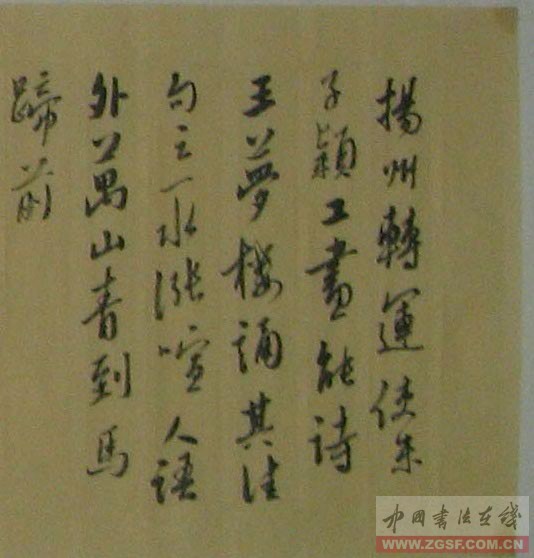 揚州轉運使朱
子穎工畫能詩
王夢樓誦其佳
句云一水漲喧人語
外萬山青到馬
蹄前
中国书法在线
WWW.ZGSF.COM.CN